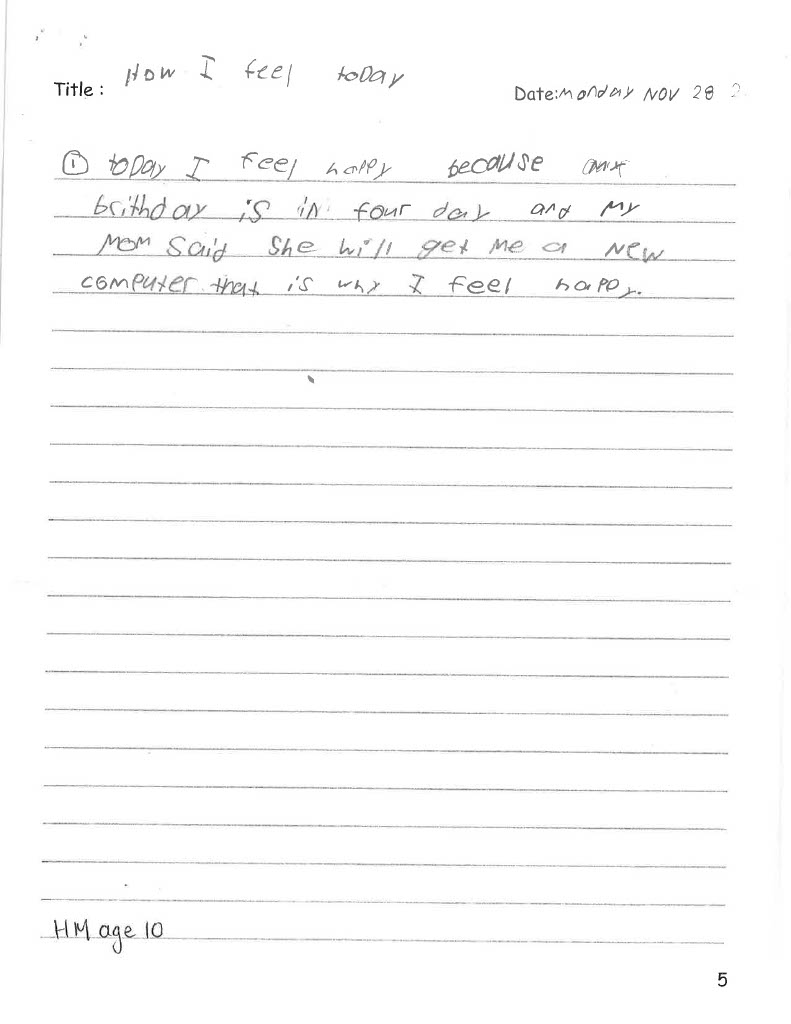 Title : How I feel toDay
Date:Monday NOV 28
① toDay I feel happy because
brithday is in four day and My
MoM Said She will get Me a New
computer that is why I feel happy.
HM age 10
5